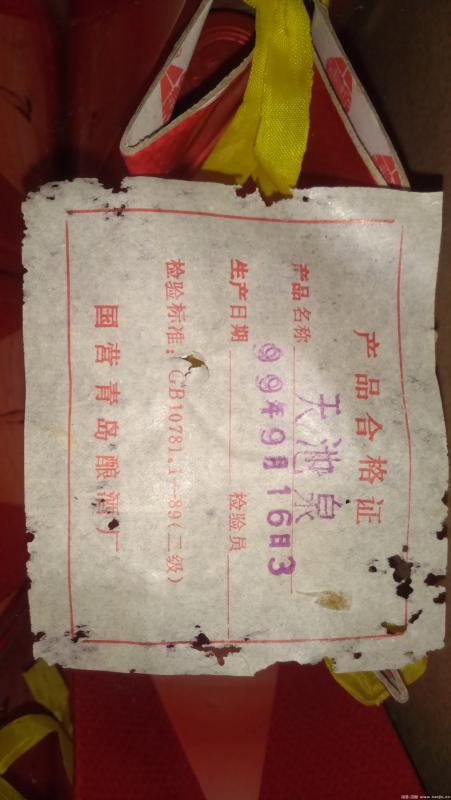 产品合格证
产品名称 天池泉
99年9月16日3
生产日期 检验员
检验标准：GB10781.1—89(二级)
国营青岛酿酒厂